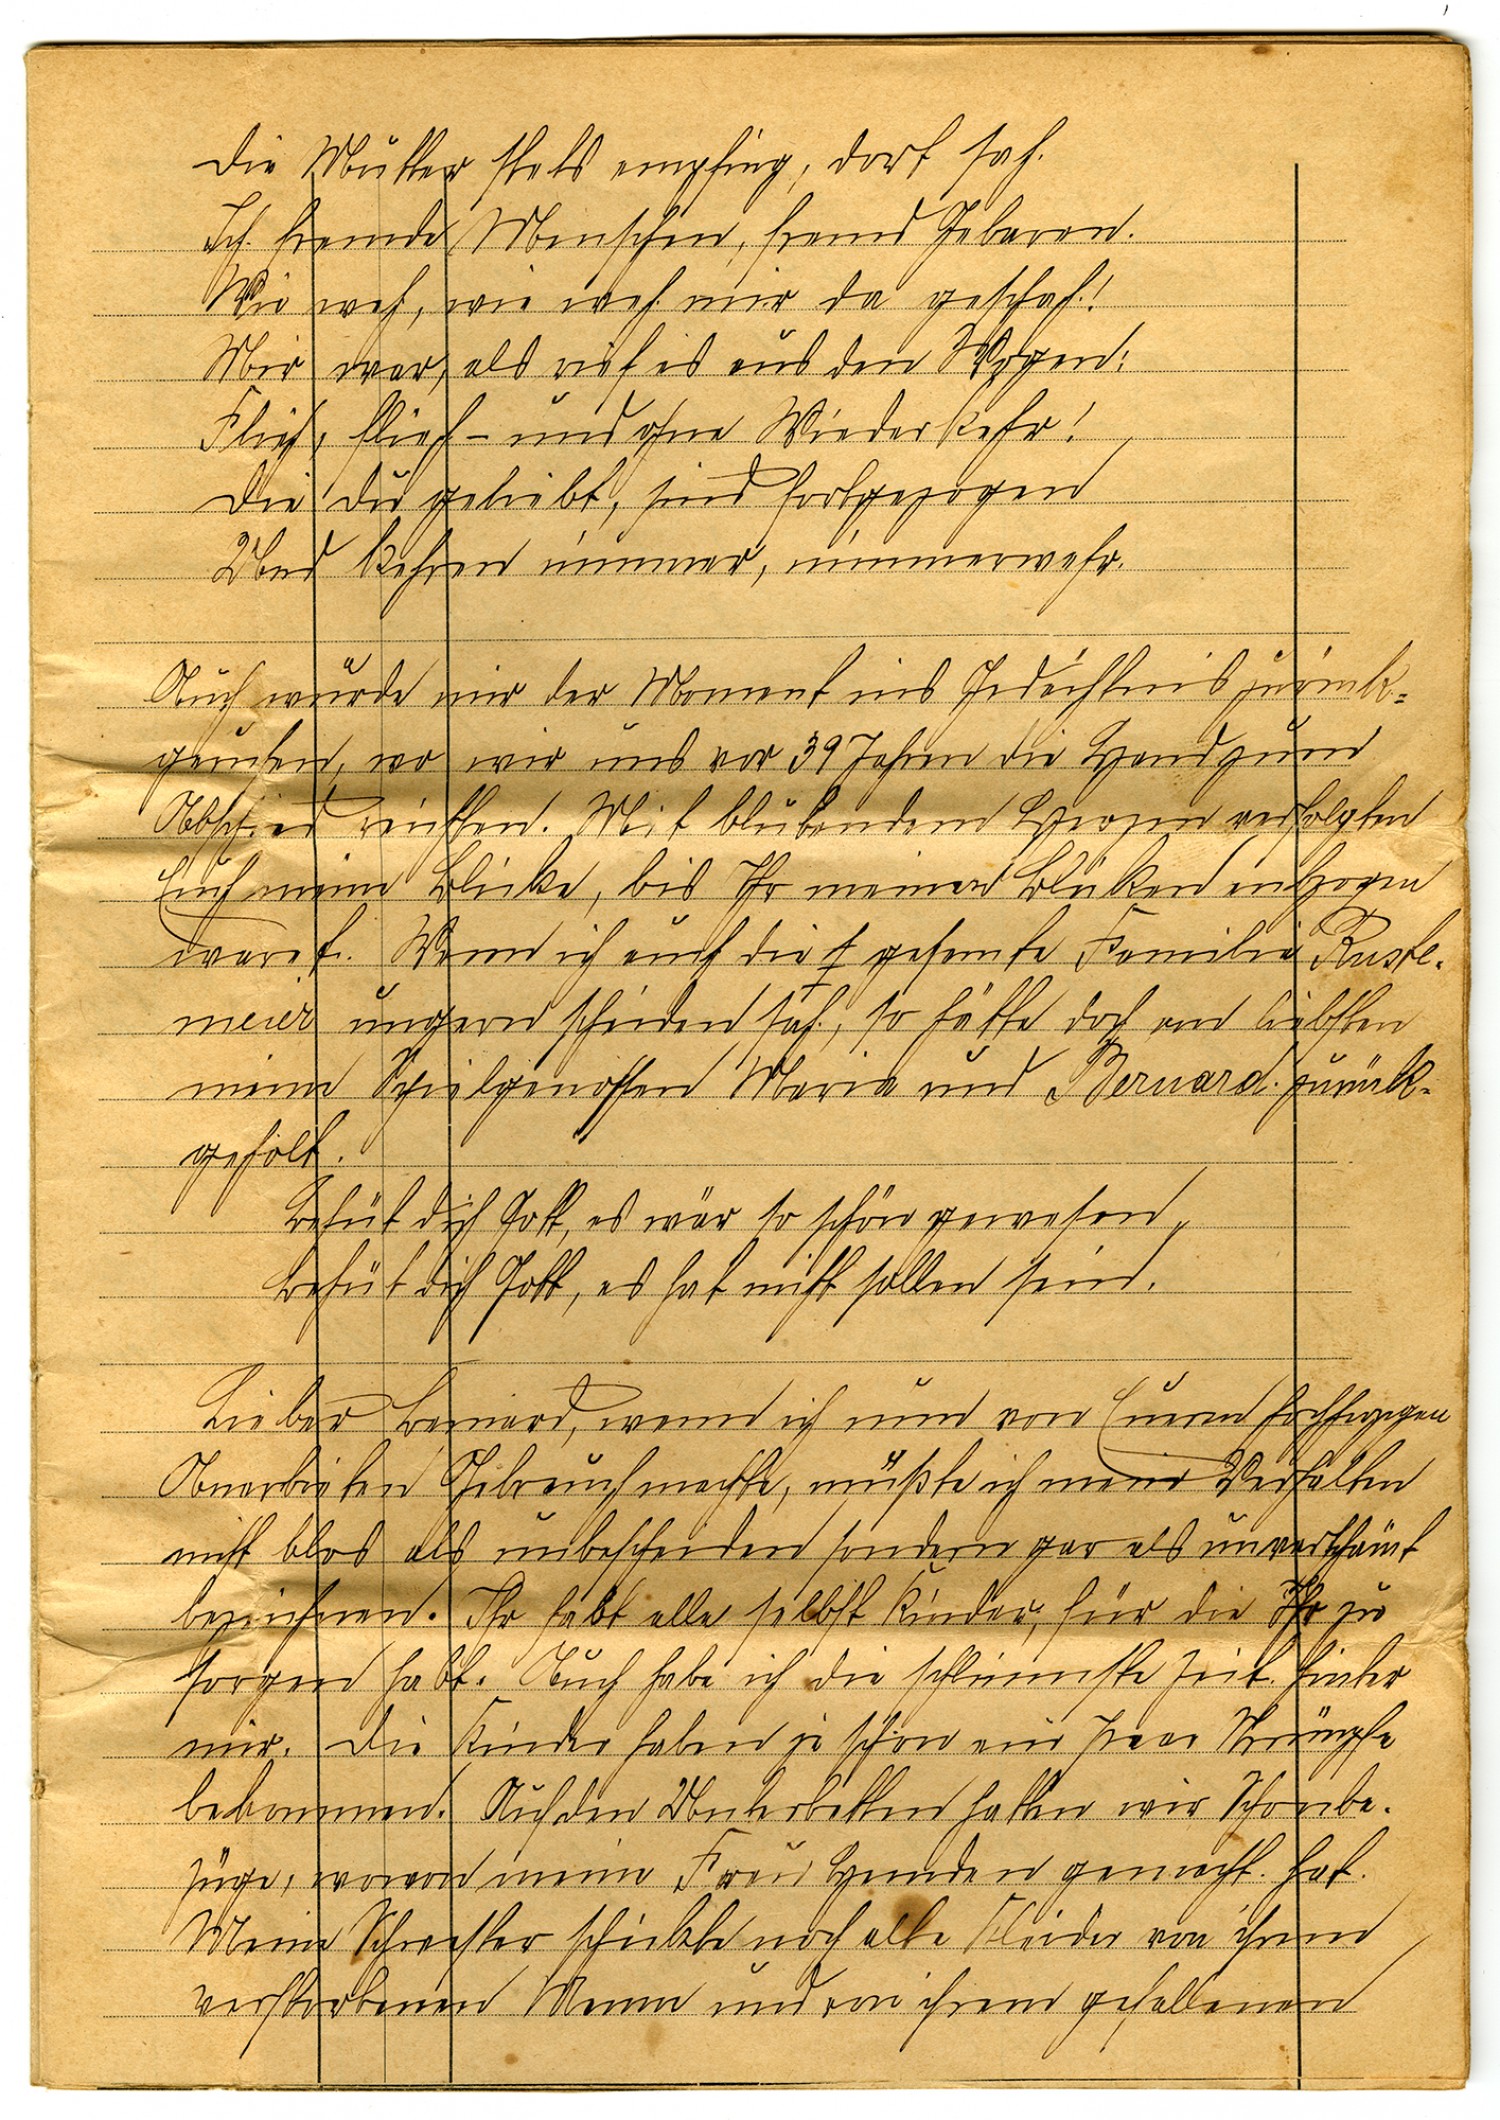 Die Mutter stets empfing, dort sah.
Ich fremde Menschen, fremd Gebaren.
Wie weh, wie weh mir da geschah!
Mir war, als rief es aus den Wogen:
Flieh, flieh – und ohne Wiederkehr!
Die du geliebt, sind fortgezogen
Und kehren nimmer, nimmermehr.
Auch wurde mir der Moment ins Gedächtnis zurück-
gerufen, wo wir uns vor 39 Jahren die Hand zum
Abschied reichten. Mit blutendem Herzen verfolgten
Euch meine Blicke, bis Ihr meinen Blicken entzogen
waret. Wenn ich auch die gesamte Familie Ruste-
meier ungern scheiden sah, so hätte doch am liebsten
meine Spielgenossen Maria und Bernard zurück-
geholt.
Behüt dich Gott, es wär so schön gewesen,
Behüt dich Gott, es hat nicht sollen sein.
Lieber Bernard, wenn ich nun von Euerm hochherzigen
Anerbieten Gebrauch machte, müßte ich mein Verhalten
nicht blos als unbescheiden sondern gar als unverschämt
bezeichnen. Ihr habt alle selbst Kinder, für die Ihr zu
sorgen habt. Auch habe ich die schlimmste Zeit hinter
mir. Die Kinder haben je schon ein paar Strümpfe
bekommen. Auf den Unterbetten hatten wir Schonbe-
züge, wovon meine Frau Hemden gemacht hat.
Meine Schwester schickte noch alte Kleider von ihrem
verstorbenen Mann und von ihrem gefallenen